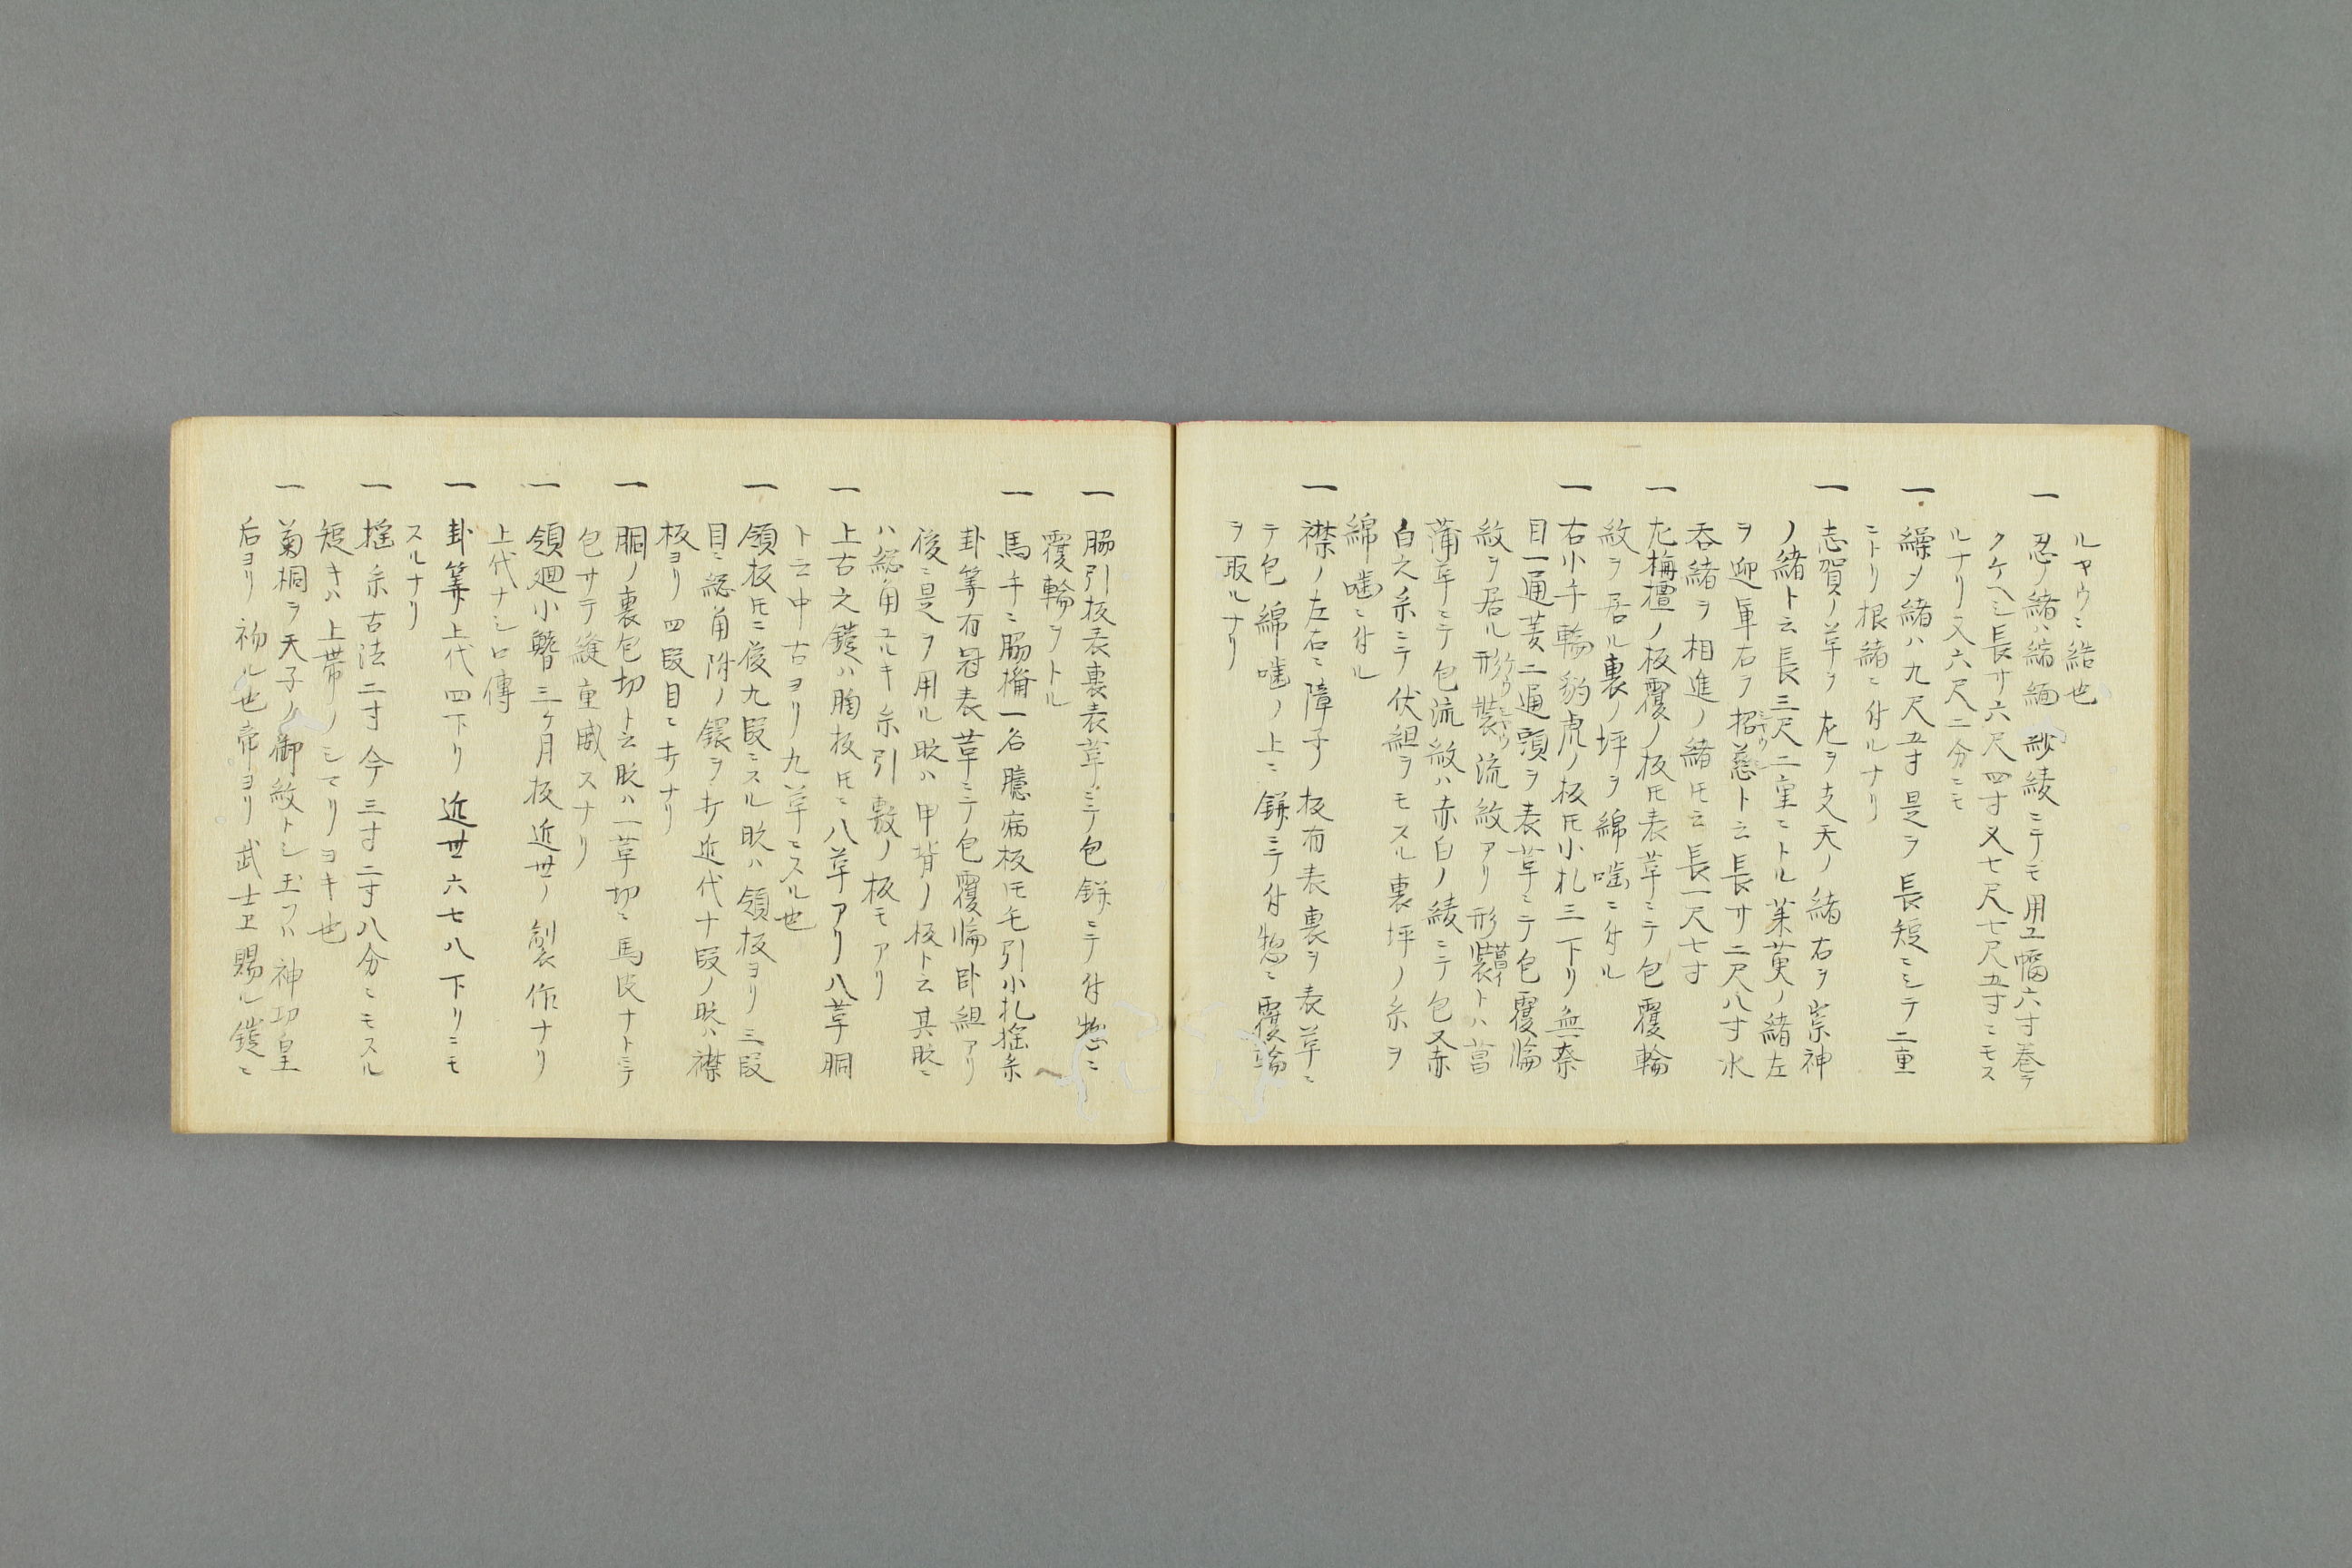 ルヤウニ結也
一 忍ノ緒ハ縮緬紗綾ニテモ用ユ幅六寸巻テ
クケヘシ長サ六尺四寸又七尺七尺五寸ニモス
ルナリ又六尺二分ニモ
一 繰シメ緒ハ九尺五寸是ヲ長短ニシテ二重
ニトリ根緒ニ付ルナリ
一 志賀ノ草ヲ左ヲ支天ノ緒右ヲ崇神
ノ緒ト云長三尺二重ニトル茱萸ノ緒左
ヲ迎軍右ヲ招慈ト云長サ二尺八寸水
呑緒ヲ相進ノ緒ト云長一尺七寸
一 左梅檀ノ板覆ノ板ト表革ニテ包覆輪
紋ヲ居ル裏ノ坪ヲ綿噛ニ付ル
一 右小手輪豹虎ノ板ト小札三下リ無奈
目一通菱二通頭ヲ表革ニテ包覆輪
紋ヲ居ル形装流紋アリ形装トハ菖
蒲革ニテ包流紋ハ赤白ノ綾ニテ包又赤
白之糸ニテ伏組ヲモスル裏坪ノ糸ヲ
綿噛ニ付ル
一 襟ノ左右ニ障子板有表裏ヲ表革ニ
テ包綿噛ノ上ニ餅ニテ付惣ニ覆輪
ヲ取ルナリ
一 脇引板表裏表革ニテ包餅ニテ付惣ニ
覆輪ヲトル
一 馬手ニ脇楯一名臆病板ト毛引小札揺糸
卦算有冠表革ニテ包覆輪卧組アリ
後ニ是ヲ用ル時ハ甲背ノ板ト云其時ニ
ハ総角ユルキ糸引敷ノ板モアリ
一 上古之鎧ハ胸板ト八草アリ八草胴
ト云中古ヨリ九草ニスル也
一 領板ト後九段ニスル時ハ領板ヨリ三段
目ニ総角附ノ鐶ヲ打近代十段ノ時ハ襟
板ヨリ四段目ニ打ナリ
一 胴ノ裏包切ト云時ハ一草切ニ馬皮ナトニテ
包サテ縫重威スナリ
一 領廻小鰭三ケ月板近世ノ製作ナリ
上代ナシ口傳
一 卦算上代四下リ近世六七八下リニモ
スルナリ
一 揺糸古法二寸今三寸二寸八分ニモスル
短キハ上帯ノシマリヨキ也
一 菊桐ヲ天子ノ御紋トシ玉フハ神功皇
后ヨリ初ル也帝ヨリ武士エ賜ル鎧ニ